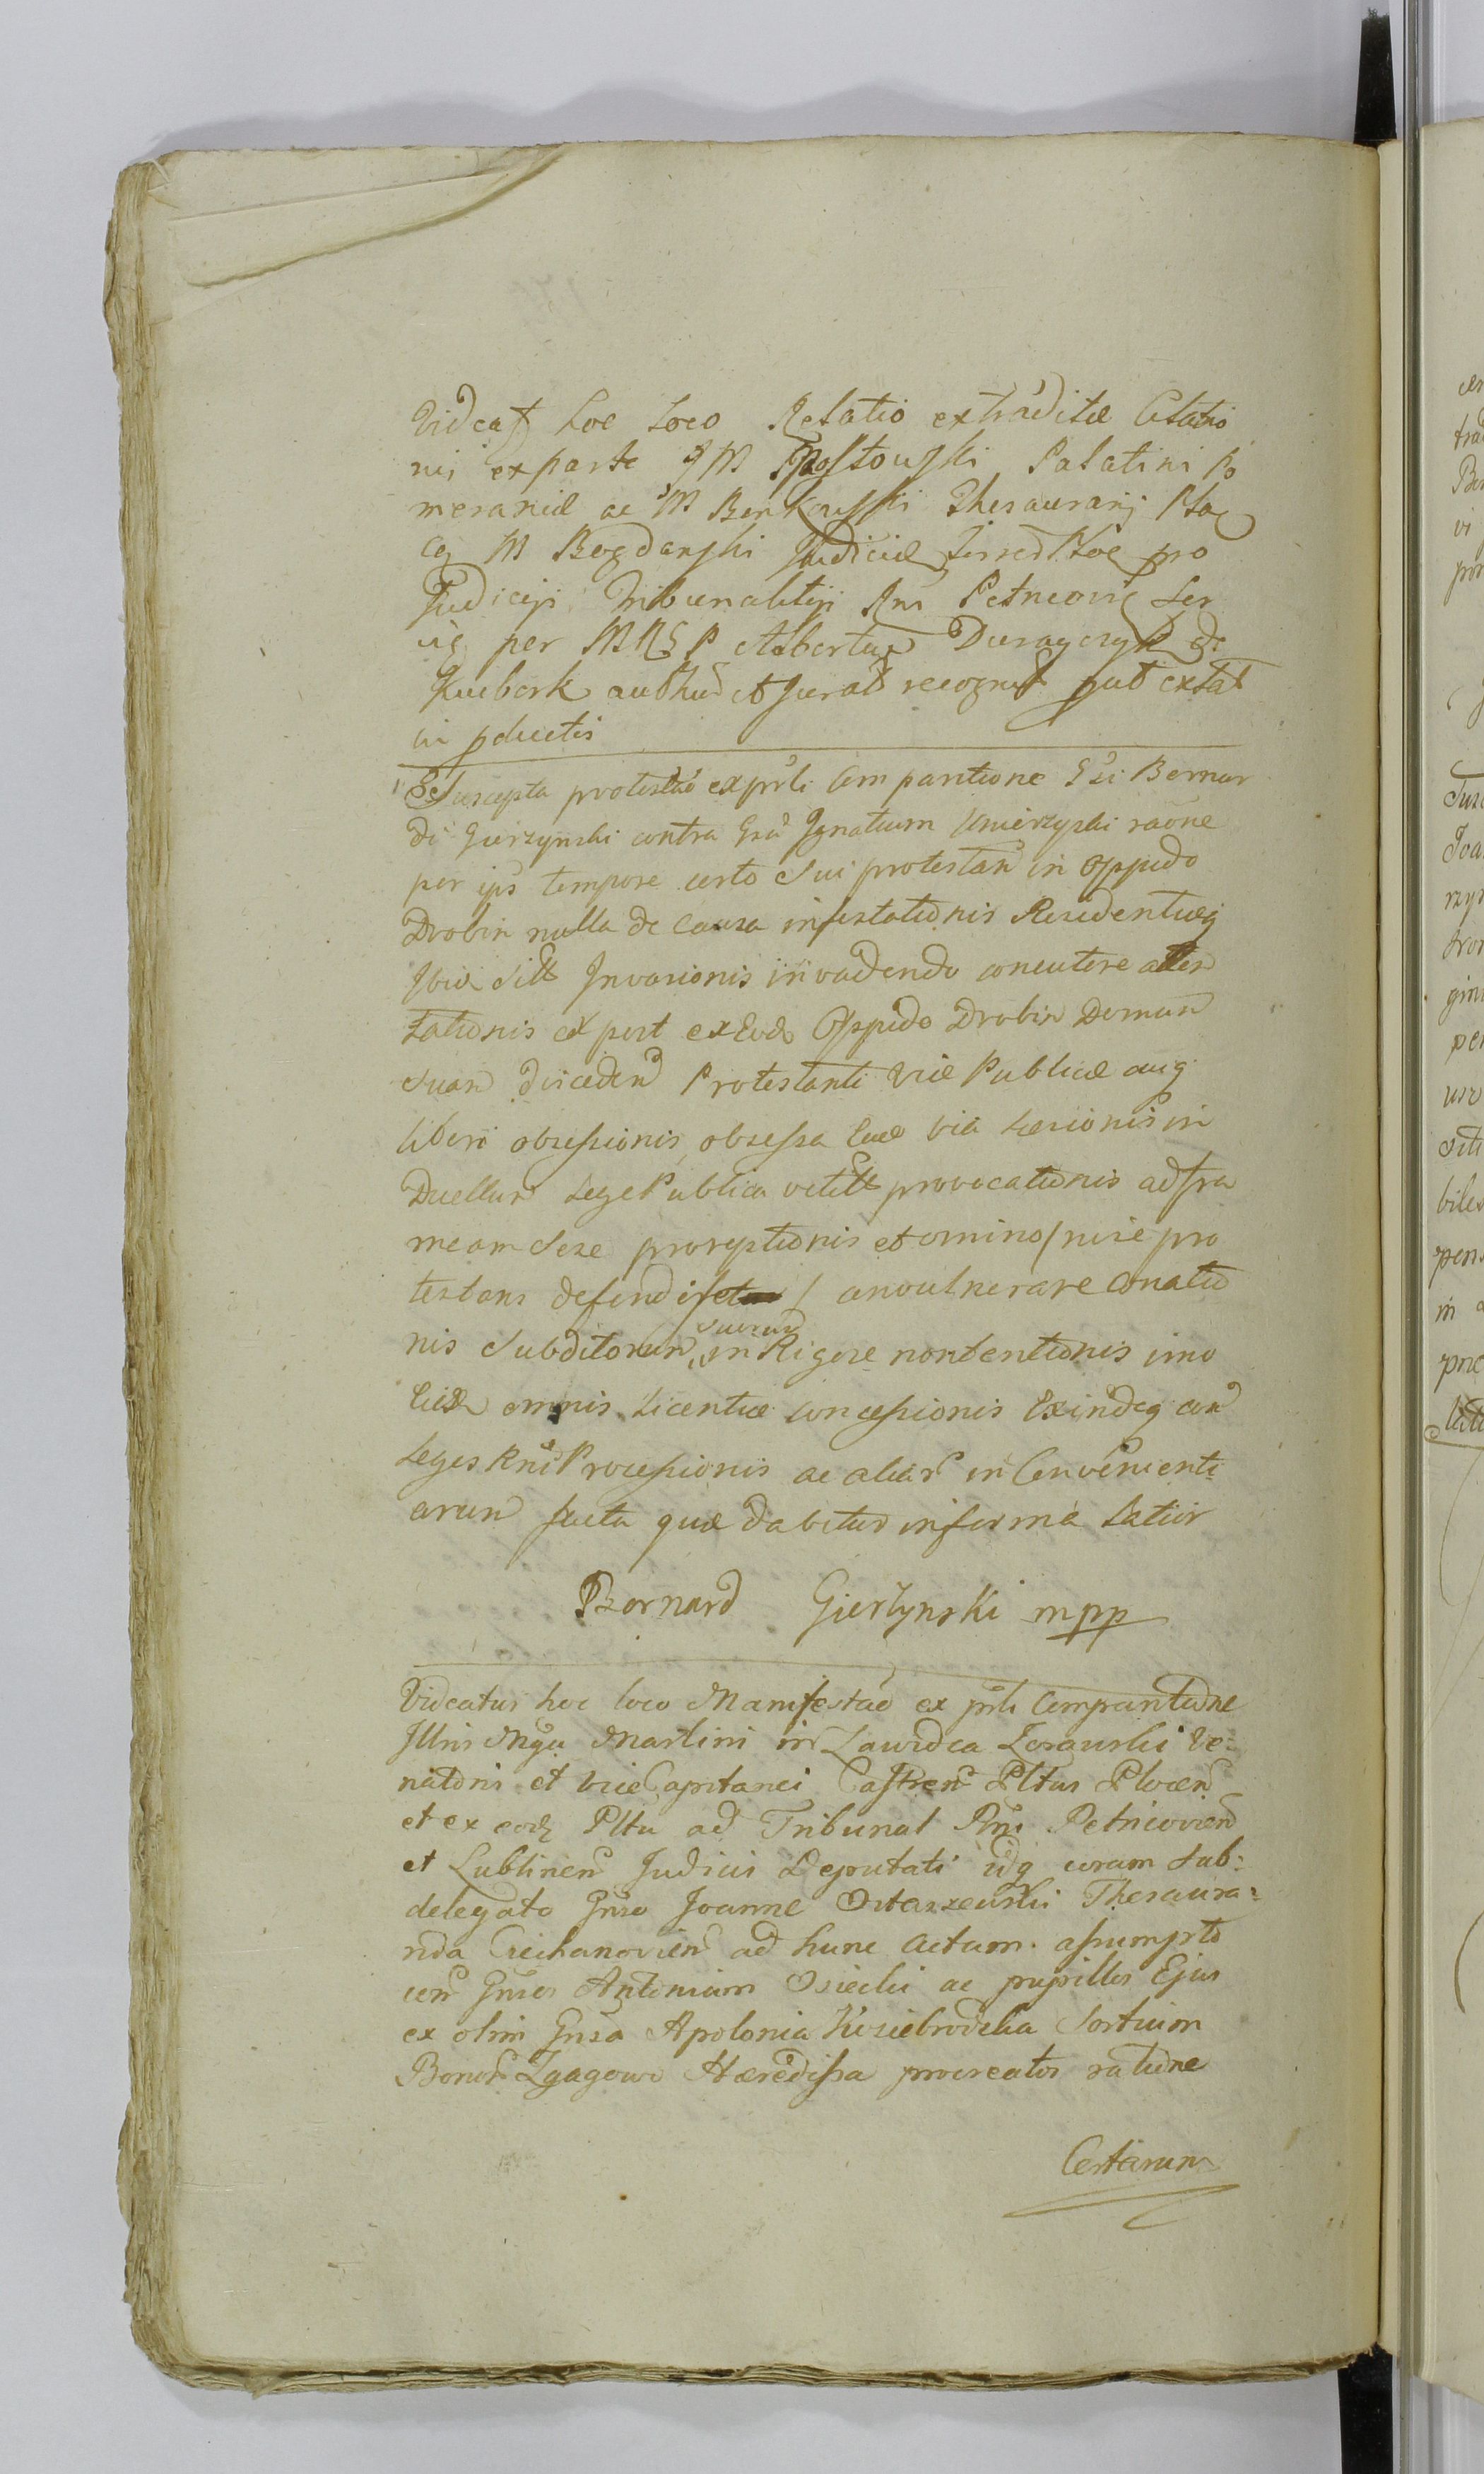 Videat hoc Loco Relatio extraditæ Citatio
nis ex parte J M Mostowski Palatini Po
meraniæ ac M Bonkowski Thesaurarij Ploc
M Bogdanski Judiciæ Terred Ploc pro
Judicijs Tribunalitijs Rni Petricovie Ser
per M R S P Albertus de
Kuebork authen et Jurat recognit put extat
in pductis
Suscepta protestao ex prsli Comparitione Gsi Bernar
di Gierzynski contra Gsu Ignatium Umierzyski raōne
per ips tempore certo Sui protestan in Oppido
Drobin nulla de Causa infestationis Residentiæq
Ibid Sitt Invasionis invadendo concutere atten
tationis et post ex Eod Oppido Drobin Domum
suam discedend Protestanti Viæ Publicæ auq
liberi obsessionis, obsessa Eaæ via Læsionis in
Duellum Lege Publica vetitt provocationis ad fra
meam Sese proreptionis et omino / nisi pro
testans defendisset / convulnerare Conatio
nis Subditorum suorum in Rigore non tentionis imo
Eisd omnis Licentiæ Concessionis Exindeq con
Leges Rni Processionis ac aliar in Convenienti
arum facta quæ dabitur in forma Latior
Bernard Gierzynski mpp
Videatur hoc loco Manifestao ex prsli Comparitione
Illris Mgci Martini in Lawidca Zorawski Ve=
natoris et Vice Capitanei Castren Pltus Plocen
et ex eod Pltu ad Tribunal Rni Petricovien
et Lublinen Judicis Deputati idq coram Sub=
delegato Gnso Joanne Ostaszewski Thesaura=
rida Ciechanovien ad hunc Actum assumpto
con Gnsos Antonium Osiecki ac pupillos Ejus
ex olim Gnsa Apolonia Koziebrodzka Sortium
Bonor Zgagowo Hæredissa procreatos ratione
Certarum